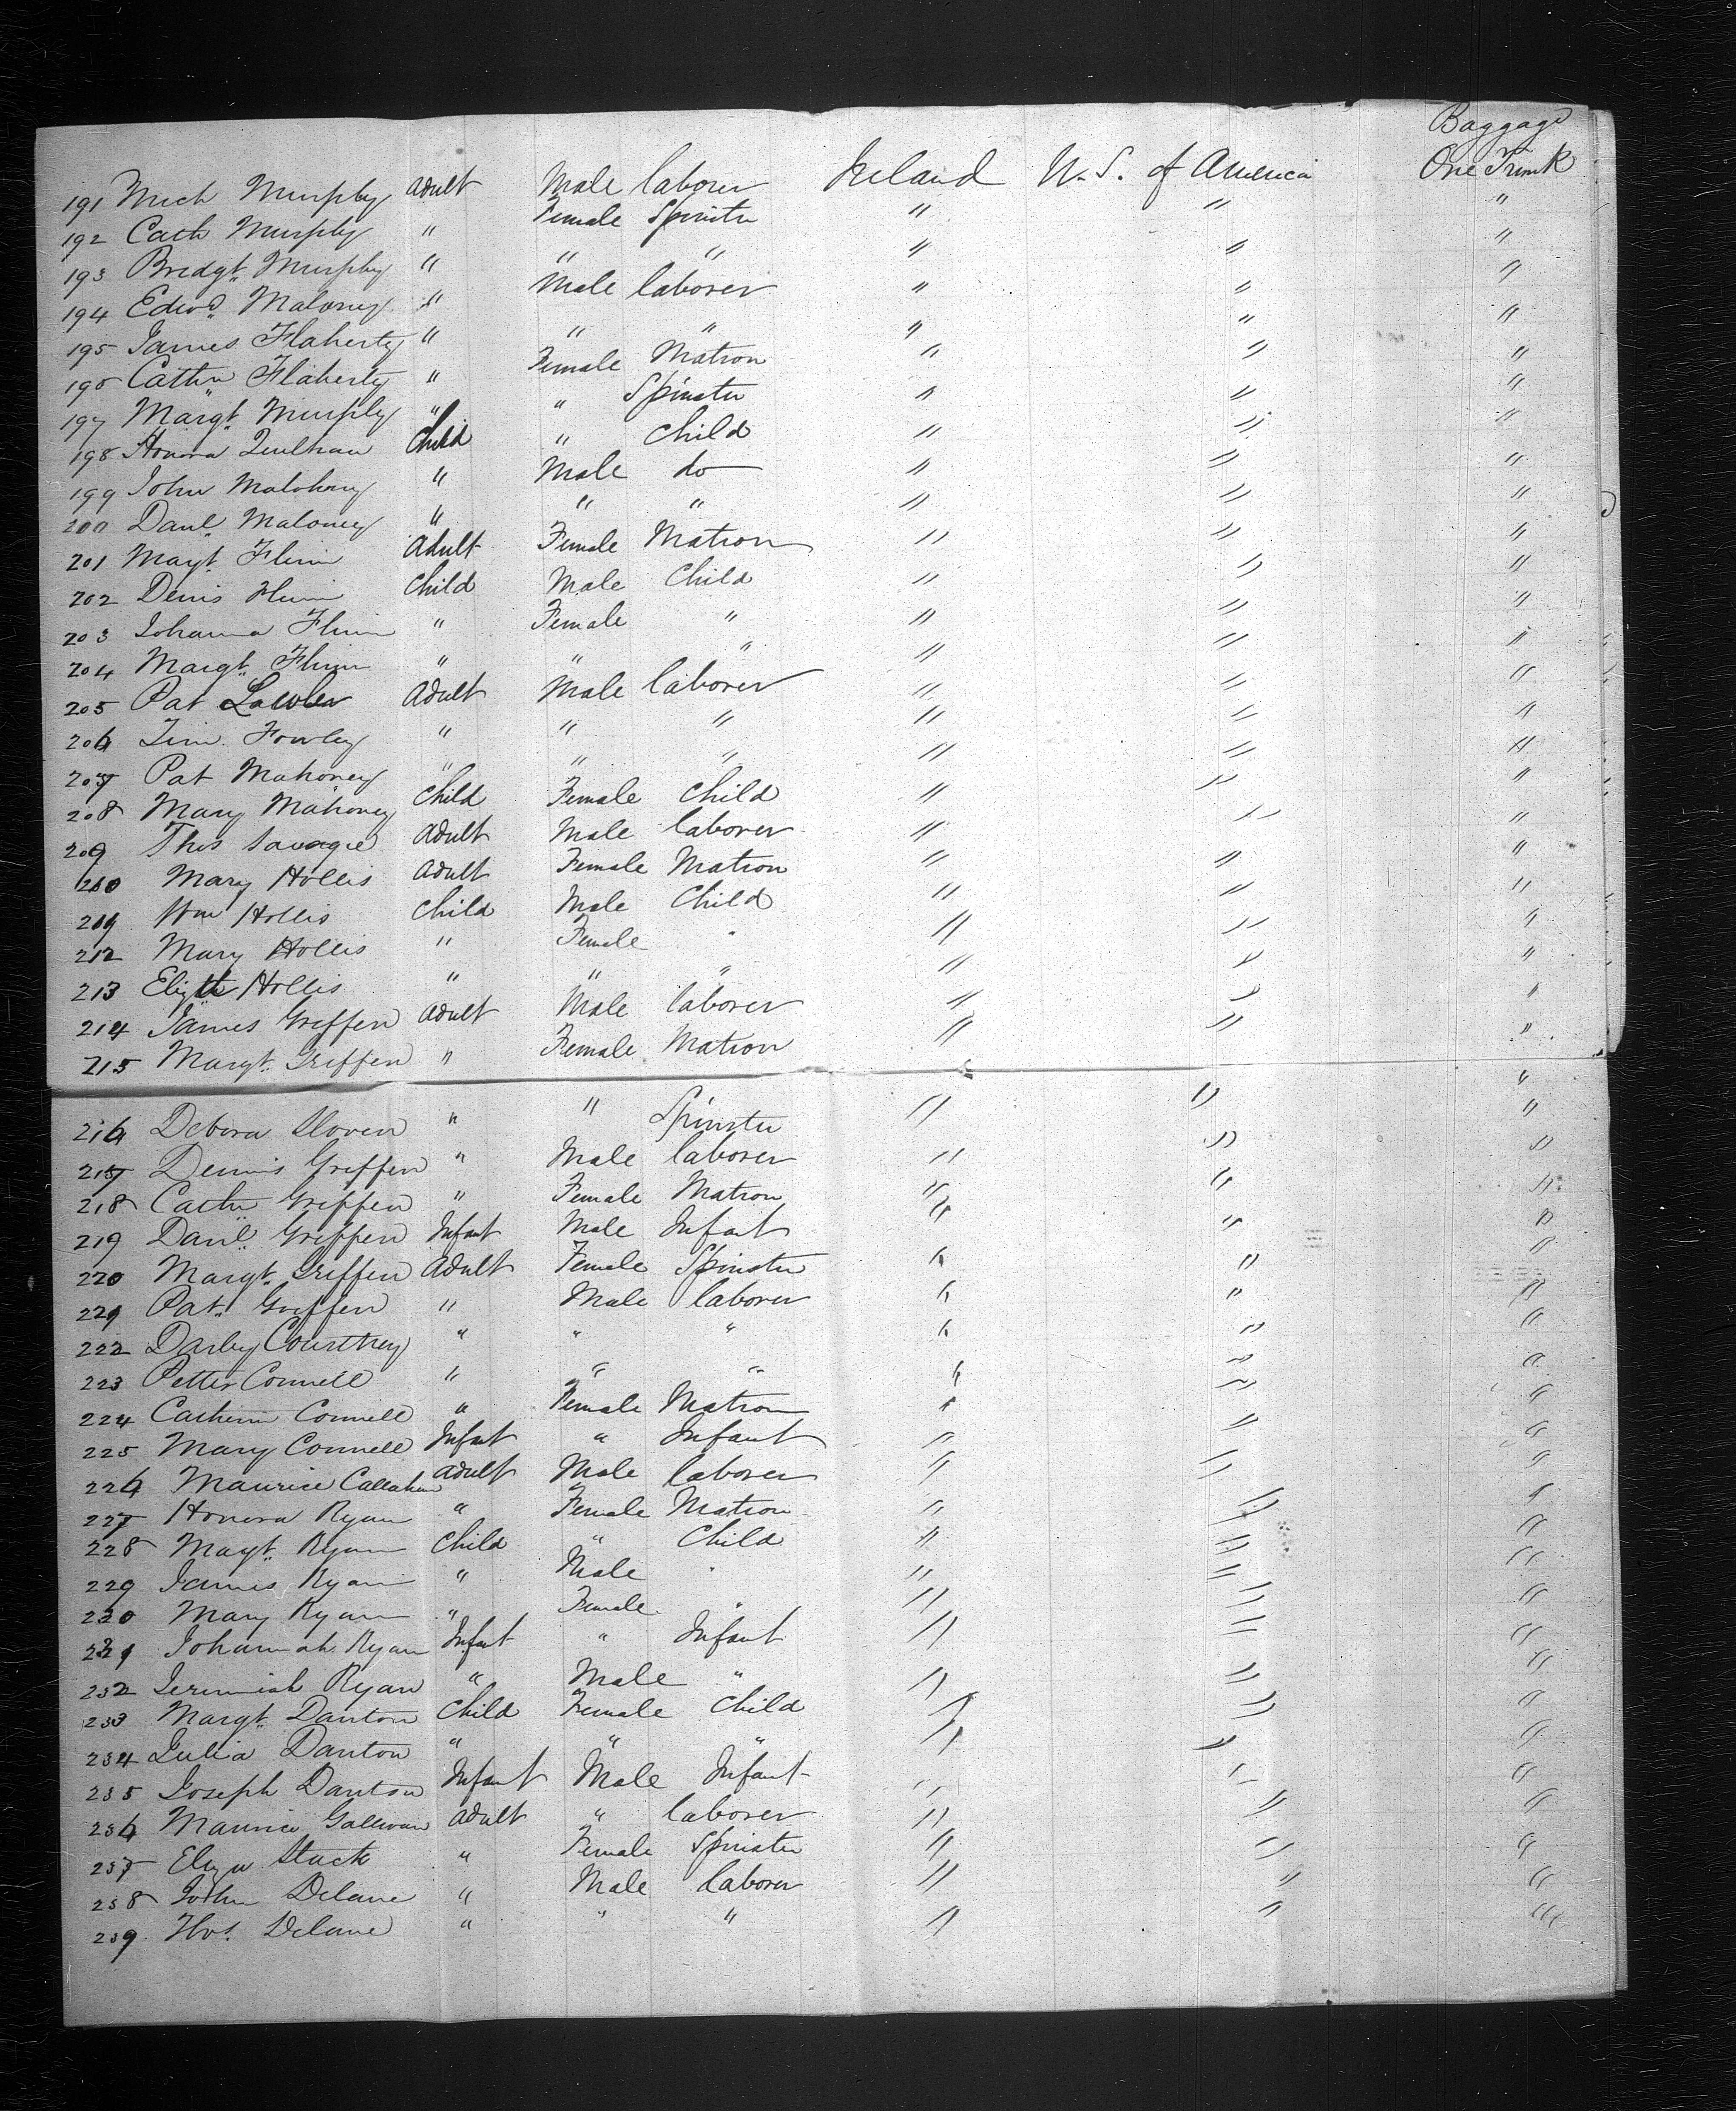 Baggage
191 Mich Murphy adult Male laborer Ireland U.S. of America One Trunk
192 Cath Murphy " Female Spinster " " "
193 Bridgt. Murphy " " " " " "
194 Edwd. Maloney " Male laborer " " "
195 James Flaherty " " " " " "
196 Cathn Flaherty " Female Matron " " "
197 Margt. Murphy " " Spinster " " "
198 Honora Child " Child " " "
199 John Mahoney " Male do " " "
200 Danl. Maloney " " " " " "
201 Margt. Flinn Adult Female Matron " " "
202 Denis Flinn Child Male Child " " "
203 Johanna Flinn " Female " " " "
204 Margt. Flinn " " " " " "
205 Pat Lawler Adult Male laborer " " "
206 Tim. Fowley " " " " " "
207 Pat Mahoney " " " " " "
208 Mary Mahoney Child Female Child " " "
209 Thos Savage Adult Male laborer " " "
210 Mary Hollis Adult Female Matron " " "
211 Wm Hollis Child Male Child " " "
212 Mary Hollis " Female " " " "
213 Elizth Hollis " " " " " "
214 James Griffen Adult Male laborer " " "
215 Margt. Griffen " Female Matron " " "
216 Debora Sloven " " Spinster " " "
217 Dennis Griffen " Male laborer " " "
218 Cathn Griffen " Female Matron " " "
219 Danl. Griffen Infant Male Infant " " "
220 Margt. Griffen Adult Female Spinster " " "
221 Pat. Griffen " Male laborer " " "
222 Darby Courtney " " " " " "
223 Petter Connell " " " " " "
224 Catherin Connell " Female Matron " " "
225 Mary Connell Infant " Infant " " "
226 Maurice Callahan adult Male laborer " " "
227 Honora Ryan " Female Matron " " "
228 Margt. Ryan Child " Child " " "
229 James Ryan " Male " " " "
230 Mary Ryan " Female " " " "
231 Johannah Ryan Infant " Infant " " "
232 Jeremiah Ryan " Male " " " "
233 Margt. Danton Child Female Child " " "
234 Julia Danton " " " " " "
235 Joseph Danton Infant Male Infant " " "
236 Maurice Gallivan adult " laborer " " "
237 Eliza Stack " Female Spinster " " "
238 John Delane " Male laborer " " "
239 Thos. Delane " " " " " "